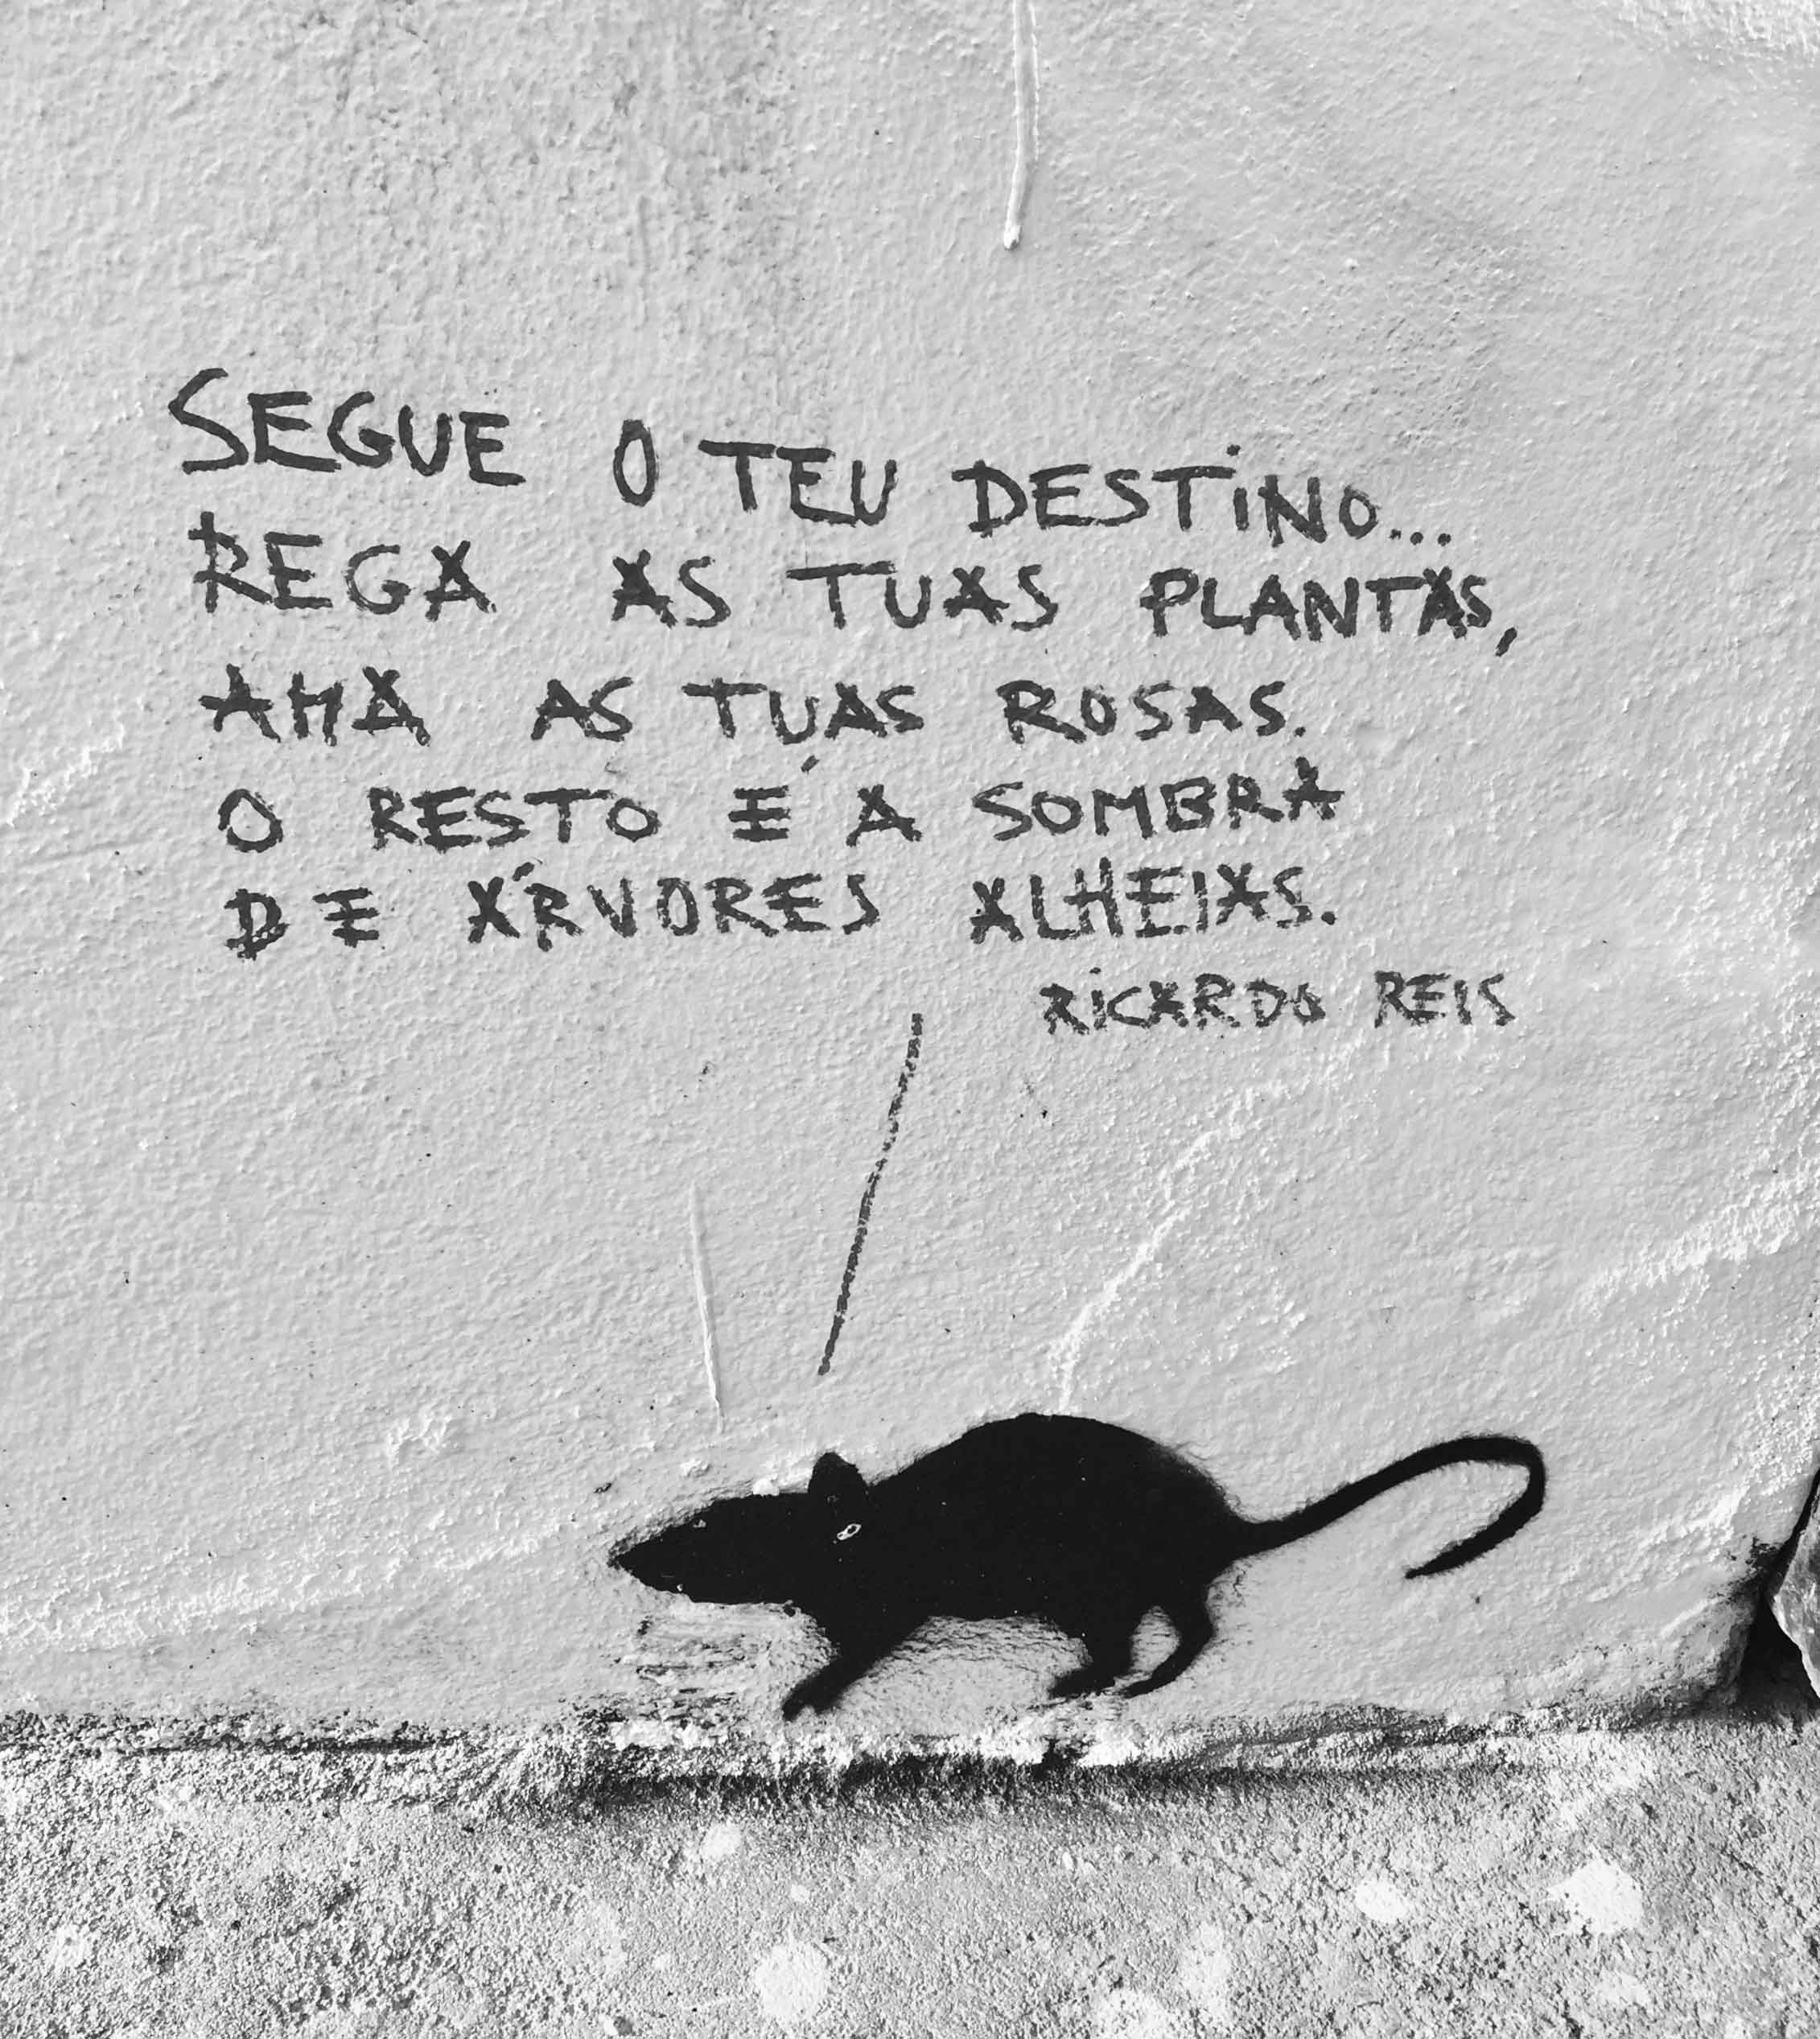 SEGUE O TEU DESTiNO...
REGA AS TUAS PLANTAS,
AMA AS TUAS ROSAS.
O RESTO É A SOMBRA
DE ÁRVORES ALHEIAS.
RiCARDO REIS